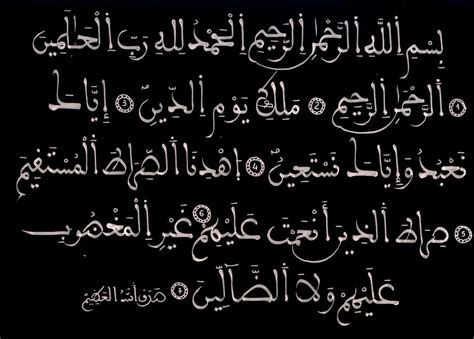 بِسْمِ اللَّهِ الرَّحْمَٰنِ الرَّحِيمِ الْحَمْدُ لِلهِ رَبِّ الْعَالَمِينَ
1 الرَّحْمَٰنِ الرَّحِيمِ 2 مَلِكِ يَوْمِ الدِّينِ 3 إِيَّاكَ
نَعْبُدُ وَإِيَّاكَ نَسْتَعِينُ 4 اهْدِنَا الصِّرَاطَ الْمُسْتَقِيمَ
5 صِرَاطَ الَّذِينَ أَنْعَمْتَ عَلَيْهِمْ 6 غَيْرِ الْمَغْضُوبِ
عَلَيْهِمْ وَلَا الضَّالِّينَ 7 صدق الله العظيم